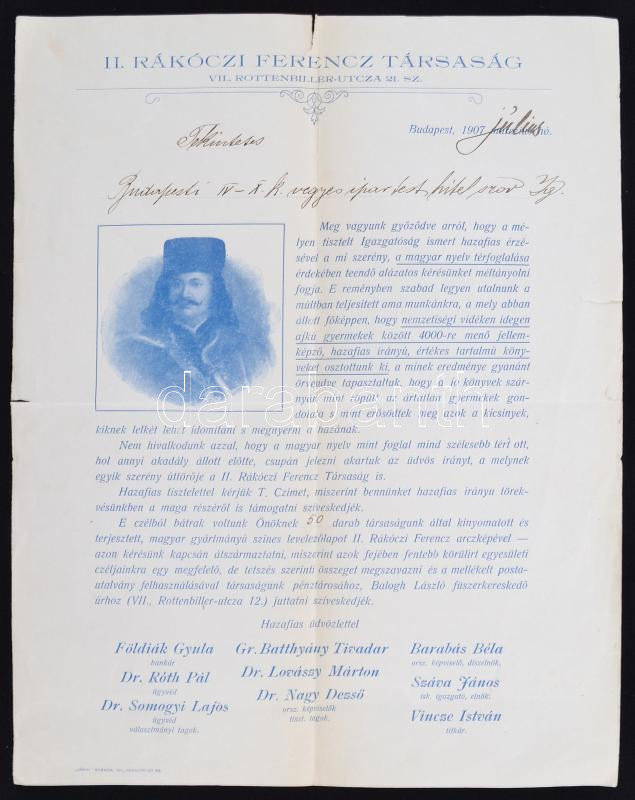 II. RÁKÓCZI FERENCZ TÁRSASÁG
VII. ROTTENBILLER-UTCZA 21. SZ.
Budapest, 1907 július hó.
Tekintetes
Budapesti IV–X. k. vegyes ipartest. hitel szöv
Meg vagyunk győződve arról, hogy a mé-
lyen tisztelt Igazgatóság ismert hazafias érzé-
sével a mi szerény, a magyar nyelv térfoglalása
érdekében teendő alázatos kérésünket méltányolni
fogja. E reményben szabad legyen utalnunk a
múltban teljesített ama munkánkra, a mely abban
állott főképpen, hogy nemzetiségi vidéken idegen
ajkú gyermekek között 4000-re menő jellem-
képző, hazafias irányú, értékes tartalmú köny-
veket osztottunk ki, a minek eredménye gyanánt
örvendve tapasztaltuk, hogy a jó könyvek szár-
nyar mint röpült az ártatlan gyermekek gon-
dolata s mint erősödtek meg azok a kicsinyek,
kiknek lelkét lehet idomítani s megnyerni a hazának.
Nem hivalkodunk azzal, hogy a magyar nyelv mint foglal mind szélesebb tért ott,
hol annyi akadály állott előtte, csupán jelezni akartuk az üdvös irányt, a melynek
egyik szerény úttörője a II. Rákóczi Ferencz Társaság is.
Hazafias tisztelettel kérjük T. Czimet, miszerint bennünket hazafias irányu törek-
vésünkben a maga részéről is támogatni szíveskedjék.
E czélból bátrak voltunk Önöknek 50 darab társaságunk által kinyomatott és
terjesztett, magyar gyártmányú színes levelezőlapot II. Rákóczi Ferencz arczképével —
azon kérésünk kapcsán átszármaztatni, miszerint azok fejében fentebb körülírt egyesületi
czéljainkra egy megfelelő, de tetszés szerinti összeget megszavazni és a mellékelt posta-
utalvány felhasználásával társaságunk pénztárosához, Balogh László fűszerkereskedő
úrhoz (VII., Rottenbiller-utcza 12.) juttatni szíveskedjék.
Hazafias üdvözlettel
Földiák Gyula
bankár
Dr. Róth Pál
ügyvéd
Dr. Somogyi Lajos
ügyvéd
választmányi tagok.
Gr. Batthyány Tivadar
Dr. Lovászy Márton
Dr. Nagy Dezső
orsz. képviselők
tiszt. tagok.
Barabás Béla
orsz. képviselő, díszelnök.
Száva János
isk. igazgató, elnök.
Vincze István
titkár.
darabanth